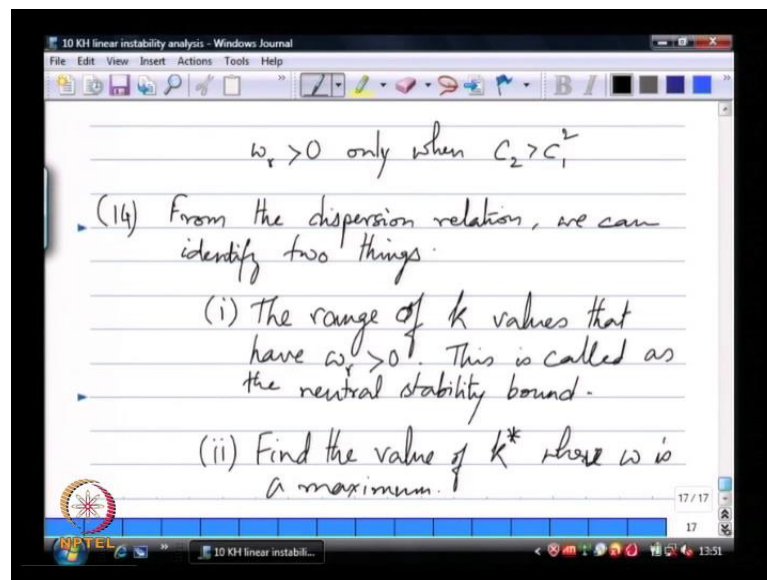 10 KH linear instability analysis - Windows Journal
File Edit View Insert Actions Tools Help
ω_r >0 only when C_2 > C_1^2
(14) From the dispersion relation, we can
identify two things.
(i) The range of k values that
have ω_r >0. This is called as
the neutral stability bound.
(ii) Find the value of k* where ω is
a maximum.
17 / 17
17
NPTEL
10 KH linear instabili...
13:51